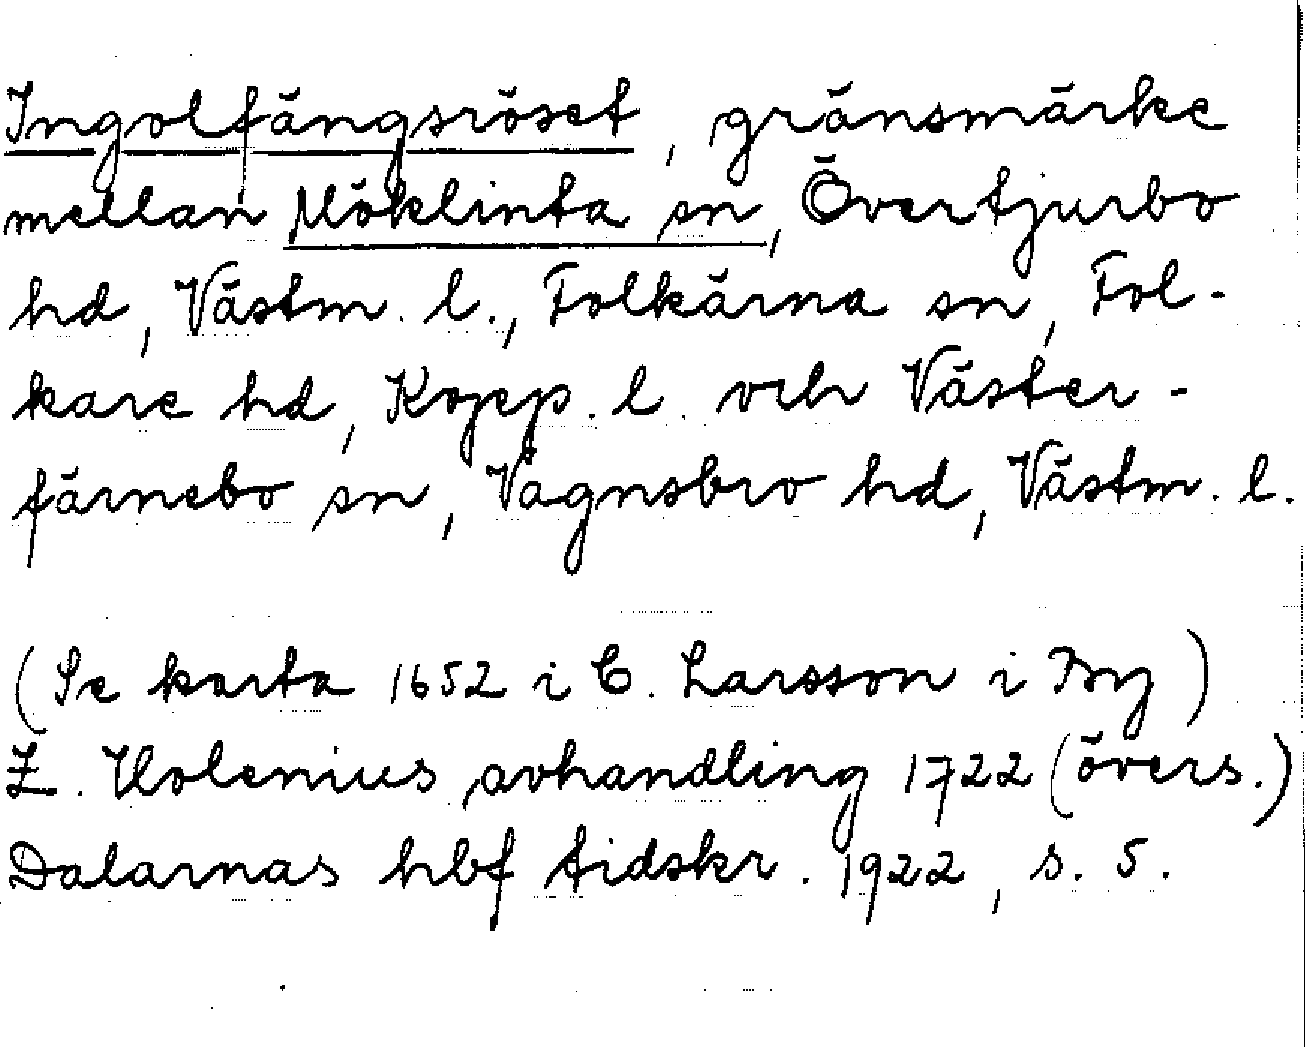 Ingolfängsröset, gränsmärke
mellan Möklinta sn, Övertjurbo
hd, Västm. l., Folkärna sn, Fol-
kare hd, Kopp. l. och Väster-
färnebo sn, Vagnsbro hd, Västm. l.
(Se karta 1652 i C. Larsson i By)
E. Holenius avhandling 1722 (övers.)
Dalarnas hbf tidskr. 1922, s. 5.